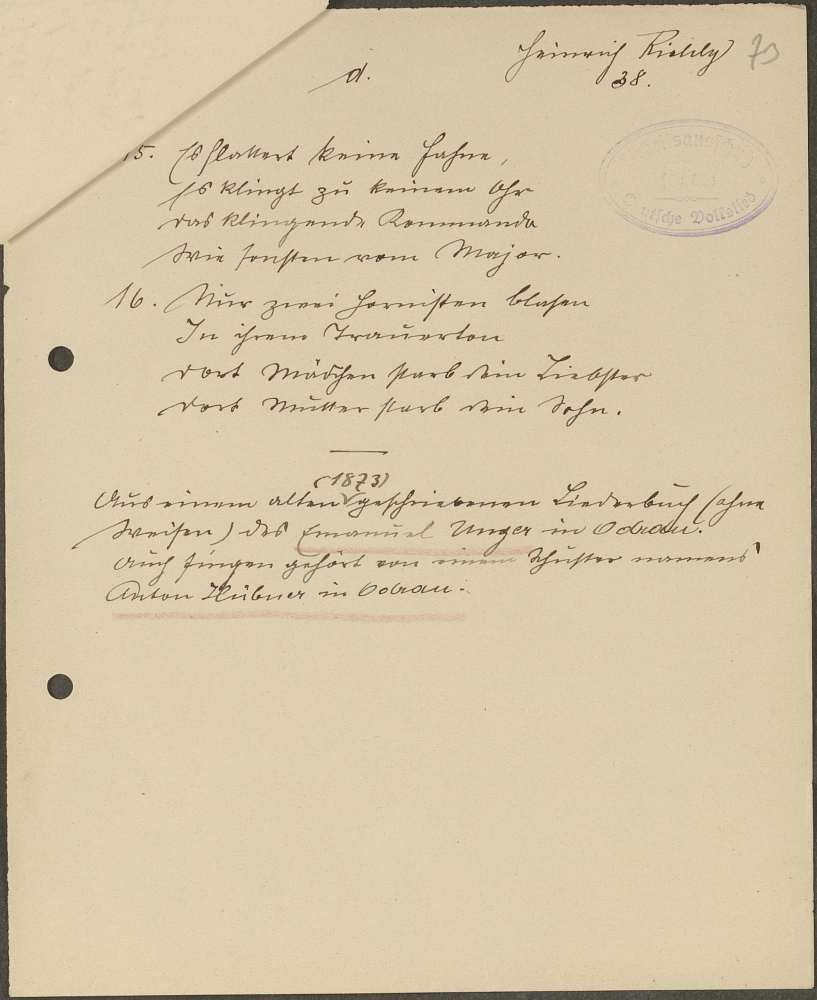 d.
Heinrich
73
38.
15. Es flattert keine Fahne,
Es klingt zu keinem Ohr
Das klingende Kommando
Wie sonsten vom Major.
16. Nur zwei Hornisten blasen
In ihrem Trauerton
Dort Mädchen starb dein Liebster
Dort Mutter starb dein Sohn.
(1873)
Aus einem alten geschriebenen Liederbuch (ohne
Weisen) des Emanuel Unger in Odrau.
Auch singen gehört von einem Schuster namens
Anton Hübner in Odrau.
Deutsche Volkslied